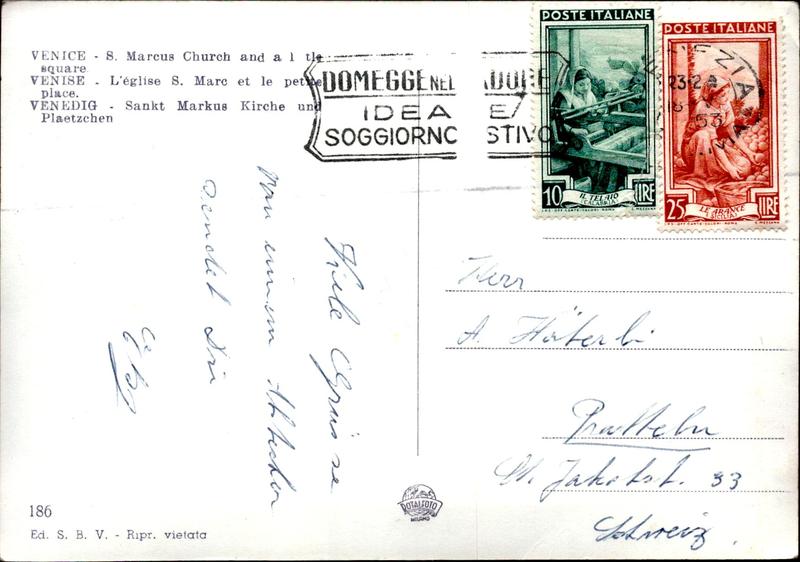 VENICE - S. Marcus Church and a l tle
square
VENISE - L'église S. Marc et le petite
place.
VENEDIG - Sankt Markus Kirche und
Plaetzchen
DOMEGGE NEL CADORE
IDEALE
SOGGIORNO ESTIVO
POSTE ITALIANE
10 LIRE
IL TELAIO
(CALABRIA)
POSTE ITALIANE
25 LIRE
LE ARANCE
(SICILIA)
VENEZIA
23-24
53
Viele Grüsse
von einem
sendet Dir
Herr
A. Häterli
Pratteln
St. Jakobst. 33
Schweiz.
186
Ed. S. B. V. - Ripr. vietata
ROTALFOTO
MILANO